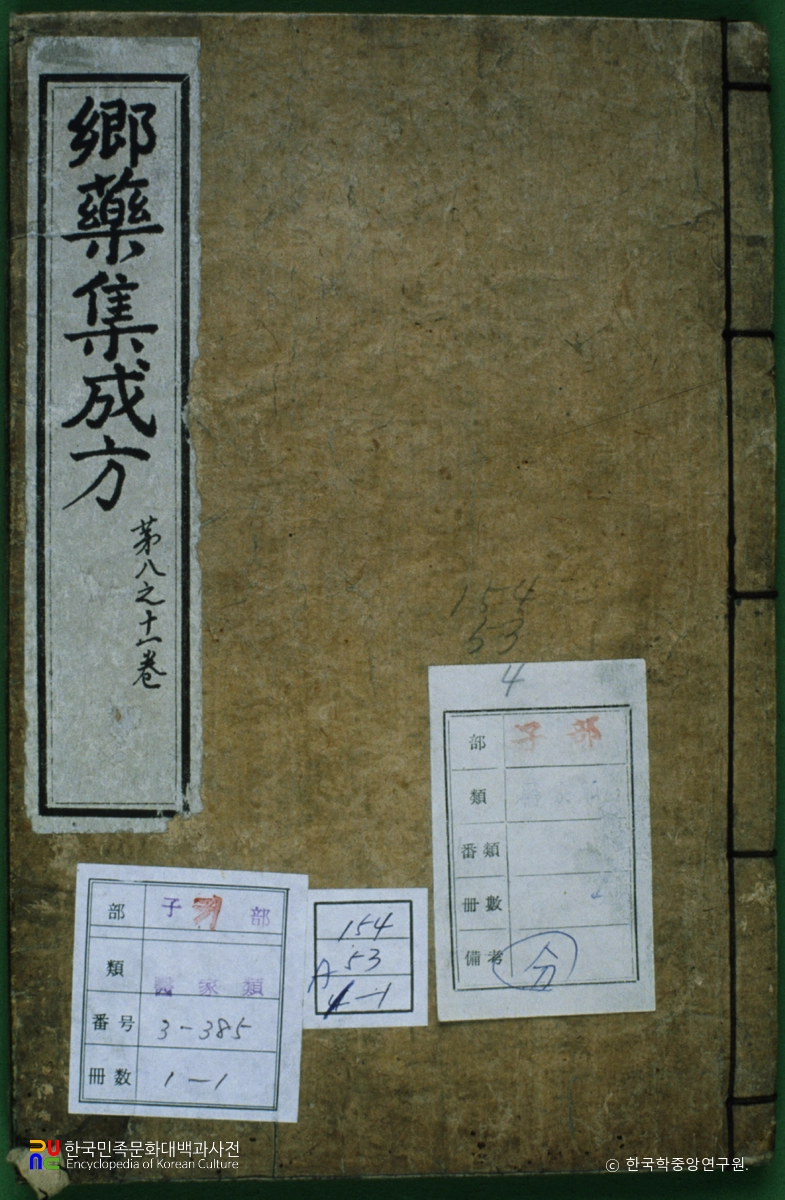 鄕藥集成方
第八之十一卷
154
53
4
部 子部
類
番類
冊數
備考 分
部 子 部
類 醫家類
番号 3-385
冊数 1-1
154
A 53
4-1
한국민족문화대백과사전
Encyclopedia of Korean Culture
© 한국학중앙연구원.